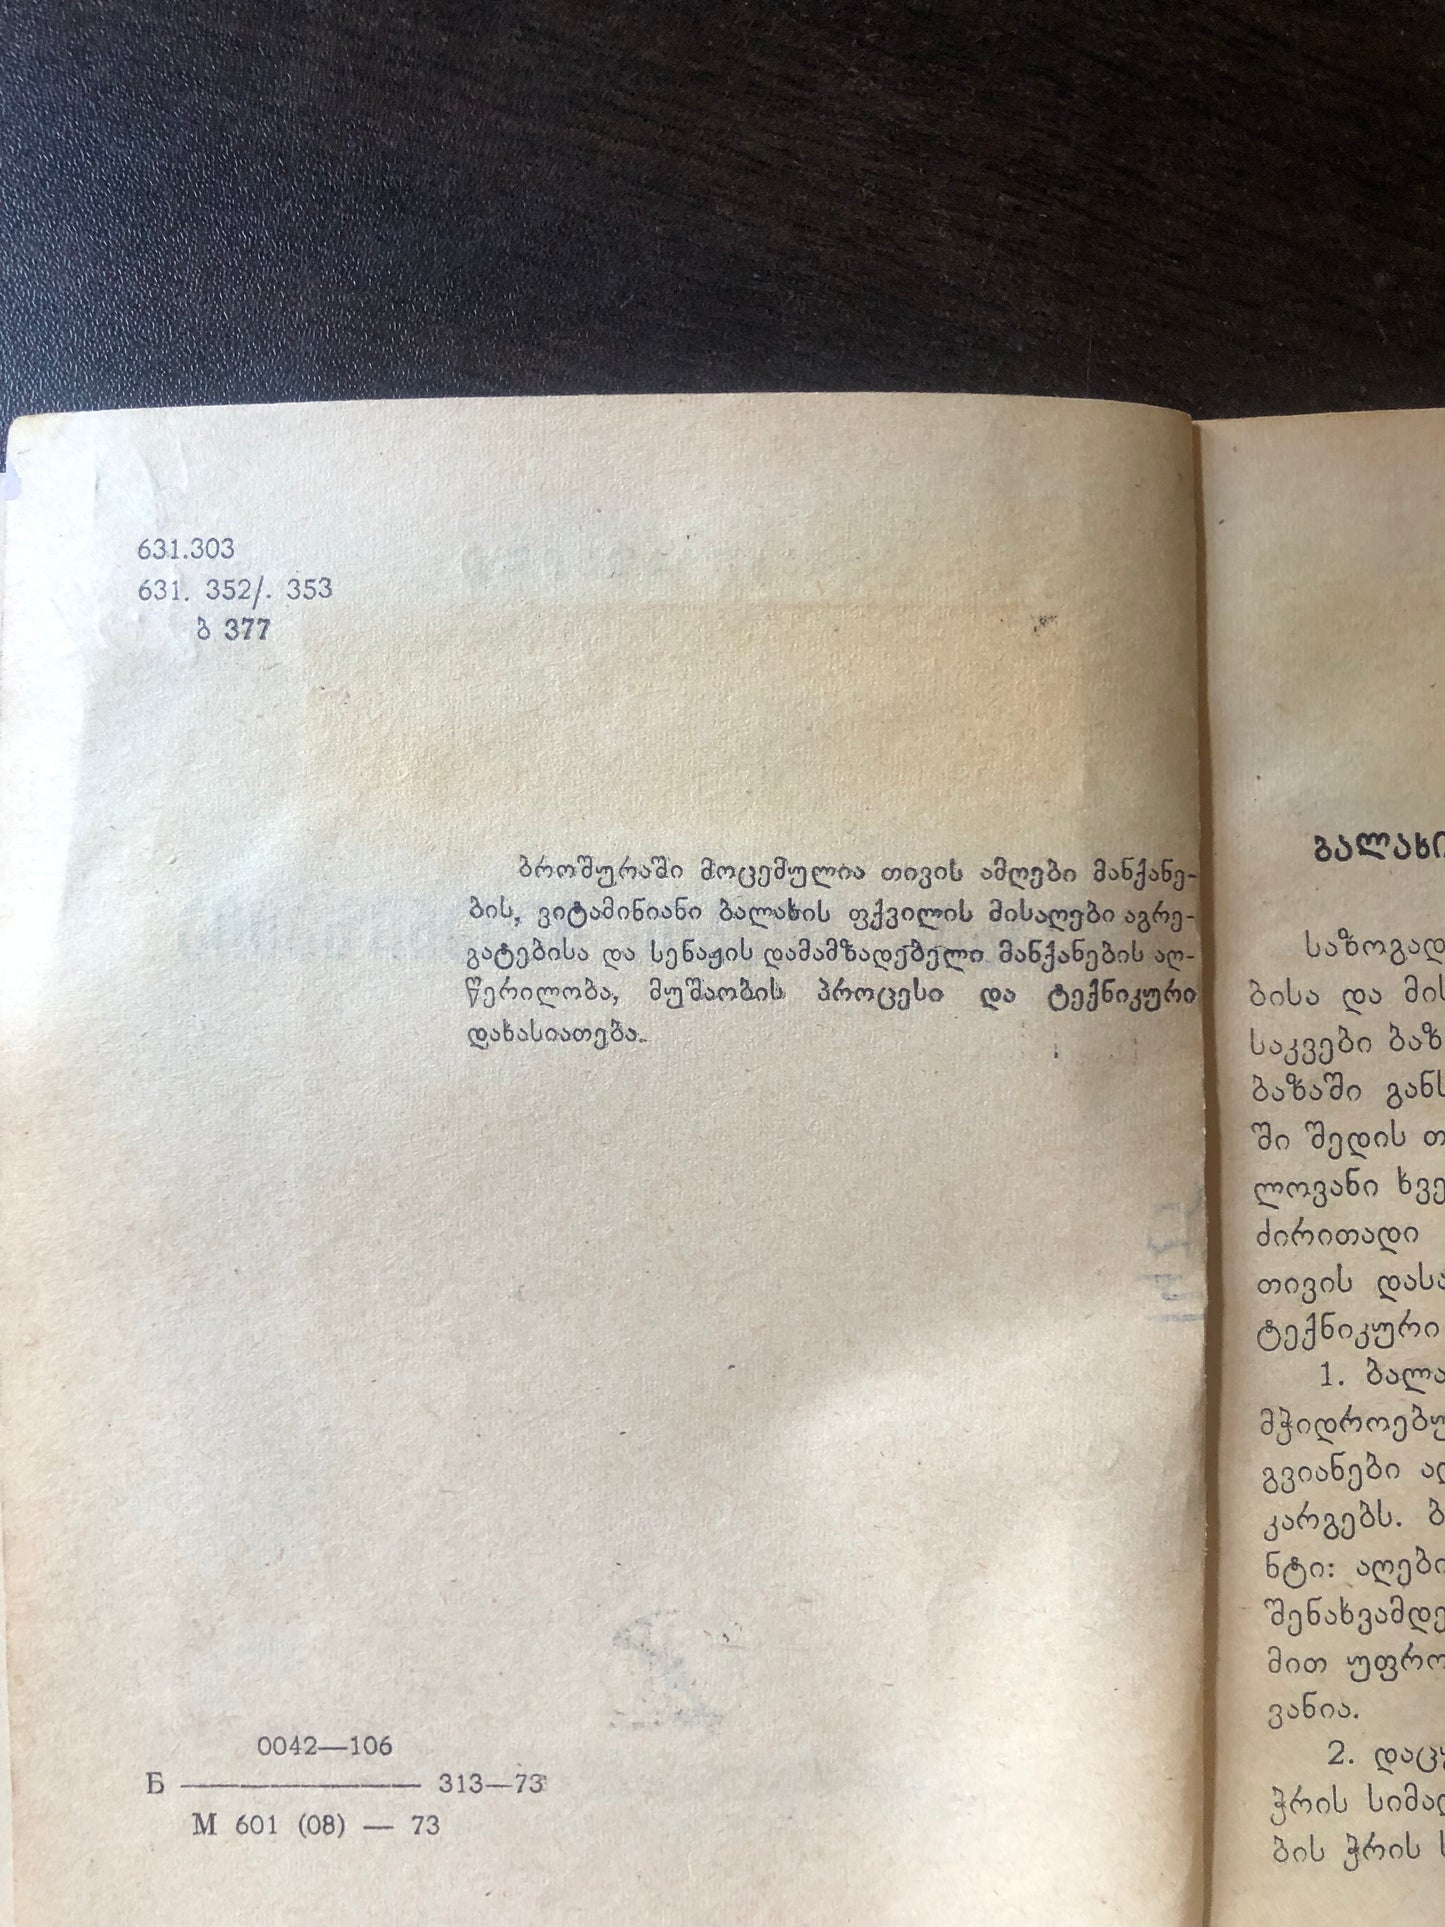 631.303
631. 352/. 353
ბ 377
ბროშურაში მოცემულია თივის ამღები მანქანე-
ბის, ვიტამინიანი ბალახის ფქვილის მისაღები აგრე-
გატებისა და სენაჟის დამამზადებელი მანქანების აღ-
წერილობა, მუშაობის პროცესი და ტექნიკური
დახასიათება.
0042—106
Б ———— 313—73
М 601 (08) — 73
ბალახი
საზოგად
ბისა და მის
საკვები ბაზ
ბაზაში განს
ში შედის თ
ლოვანი ხვე
ძირითადი
თივის დასა
ტექნიკური
1. ბალა
მჭიდროებუ
გვიანები აღ
კარგებს. ბ
ნტი: აღები
შენახვამდე
მით უფრო
ვანია.
2. დაცუ
ჭრის სიმაღ
ბის ჭრის ს